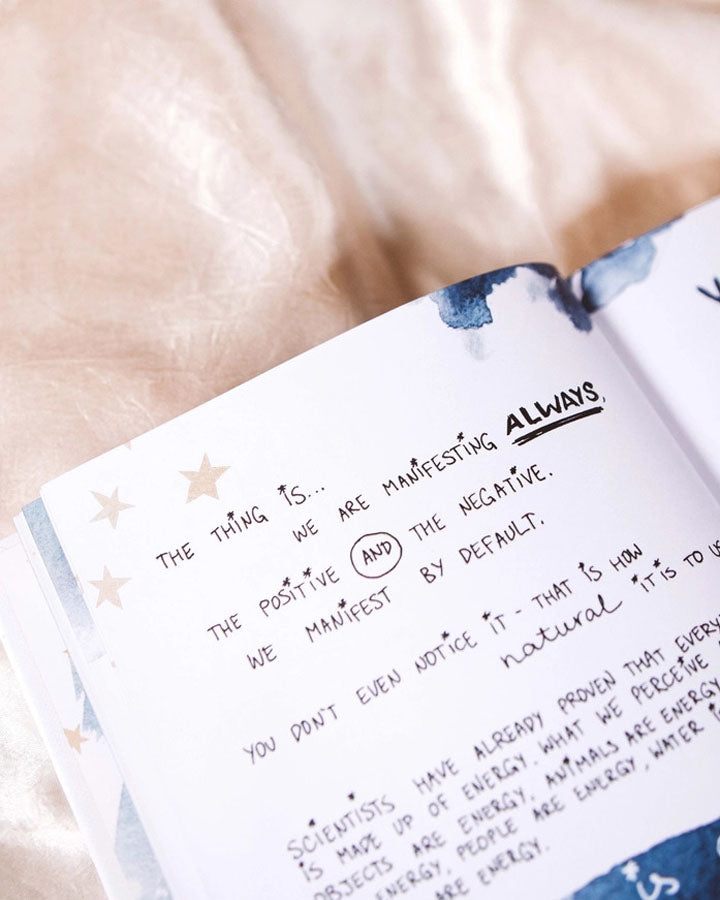 THE THING IS...
WE ARE MANIFESTING ALWAYS,
THE POSITIVE AND THE NEGATIVE.
WE MANIFEST BY DEFAULT.
YOU DON'T EVEN NOTICE IT - THAT IS HOW
natural IT IS TO US
SCIENTISTS HAVE ALREADY PROVEN THAT
IS MADE UP OF ENERGY. WHAT WE PERCEIVE
OBJECTS ARE ENERGY, ANIMALS ARE ENERGY,
ENERGY, PEOPLE ARE ENERGY, WATER IS
ARE ENERGY.
is